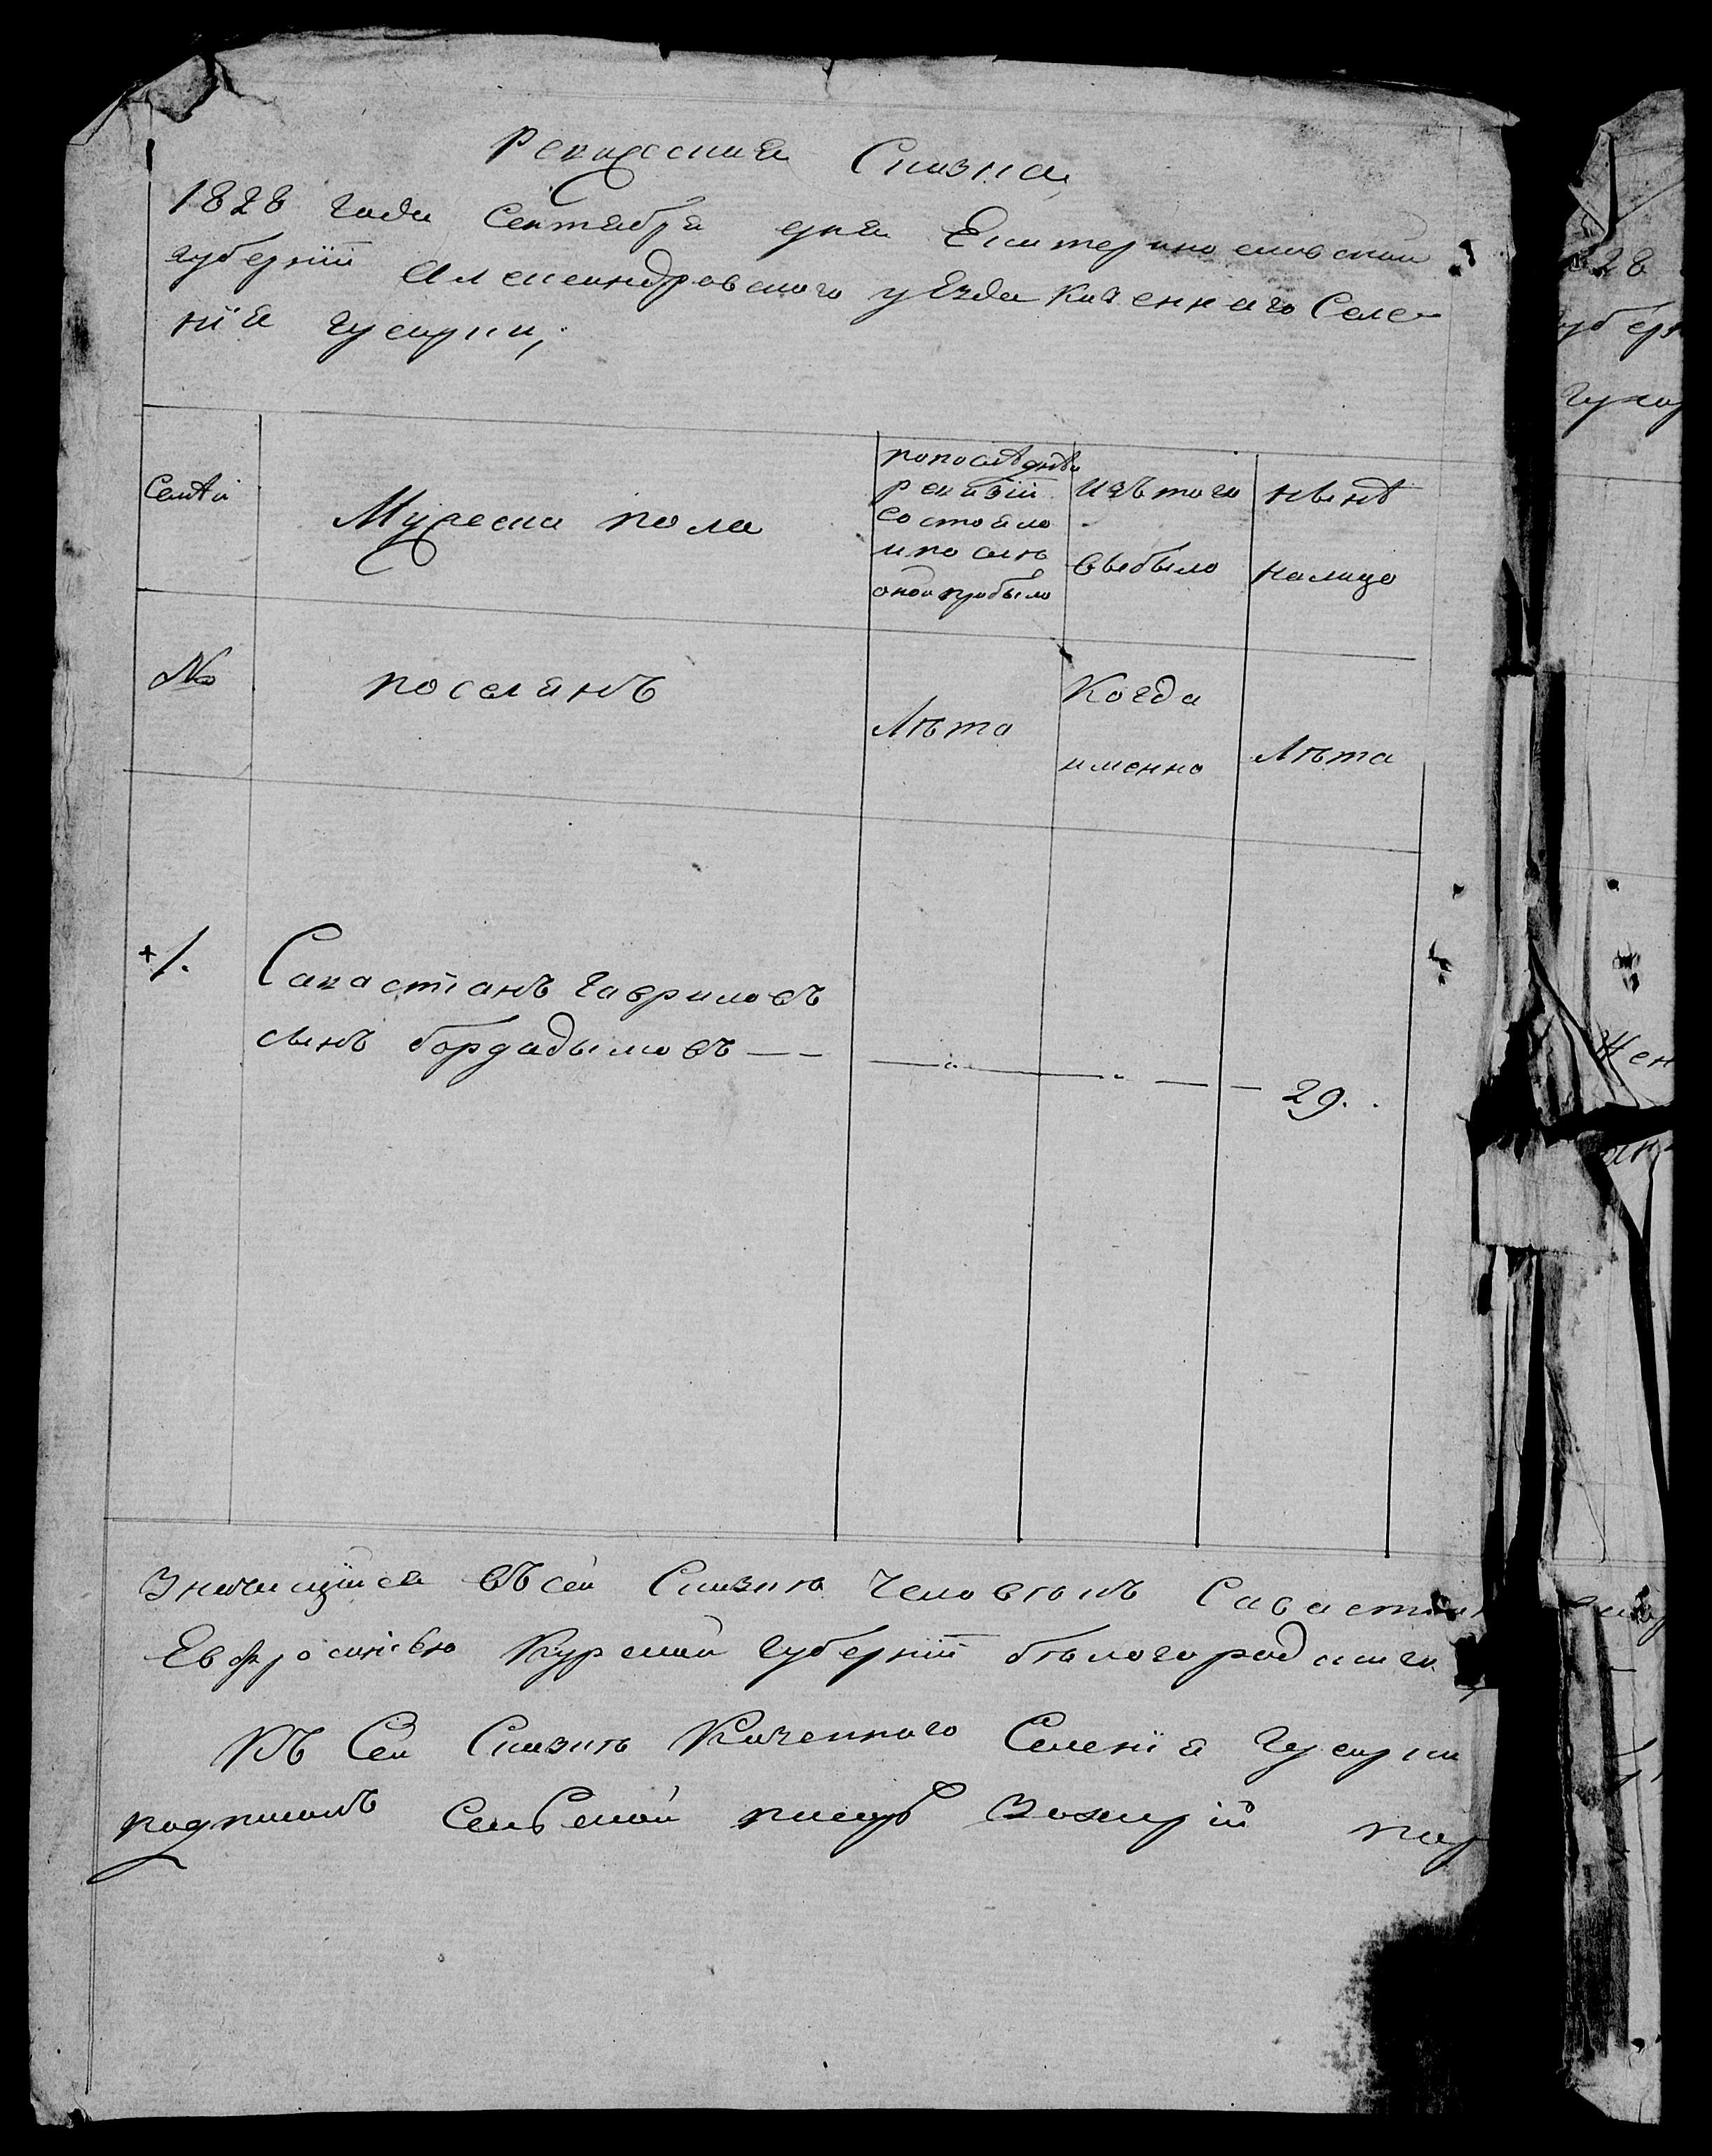 Ревизская Сказка
1828 года Сентября дня Екатеринославской
губерніи Александровского уѣзда Казенного Селе-
нія Гусарки,
Семьи
Мужеска пола
попоследнѣй
ревизіи
состояло
ипослѣ
оной прибыло
Изъ того
выбыло
нынѣ
налицо
№
поселянъ
Лѣта
Когда
именно
Лѣта
1.
Савастіанъ Гавриловъ
сынъ бордадымовъ — —
29.
Значащійся въ сей Сказкѣ Человѣкъ Савастіан
Евфросиніею Курской губерніи бѣлогородского
Къ Сей Сказкѣ Казенного Селенія Гусарки
подписалъ Сельской писарь
828
губерн
Гусар
Жен